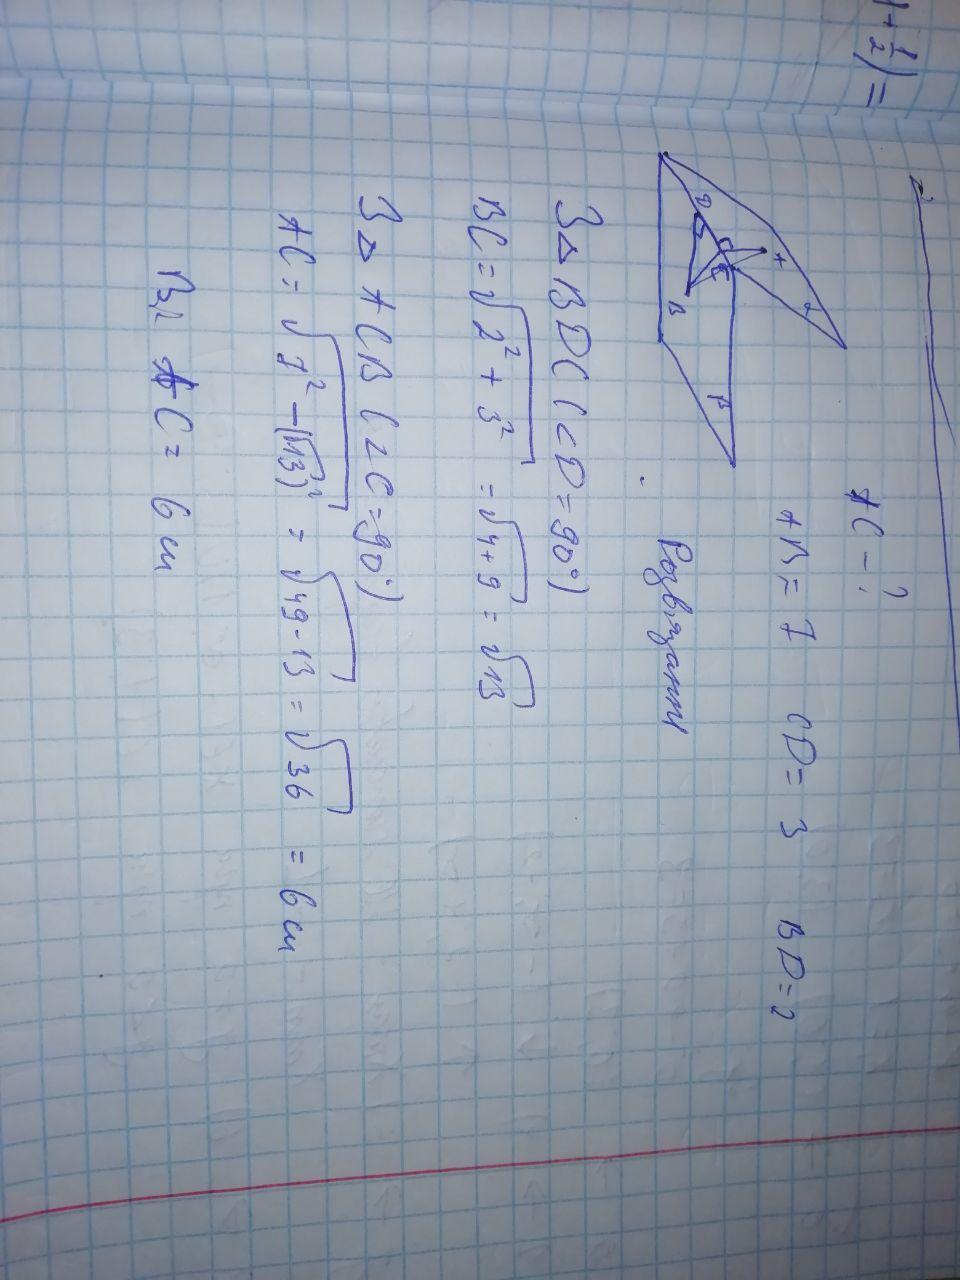 1 + 1/2) =
2
AC - ?
AB = 7 CD = 3 BD = 2
α
A
D
C
B
β
Розвязання
З △ BDC (∠D = 90°)
BC = √2² + 3² = √4+9 = √13
З △ ACB (∠C = 90°)
AC = √7² - (√13)² = √49 - 13 = √36 = 6 см
Від AC = 6 см